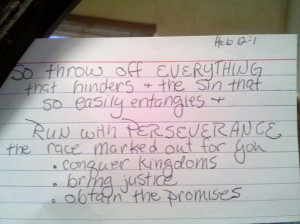 Heb 12:1
So throw off EVERYTHING
that hinders + the sin that
so easily entangles +
RUN with PERSEVERANCE
the race marked out for you
• conquer kingdoms
• bring justice
• obtain the promises